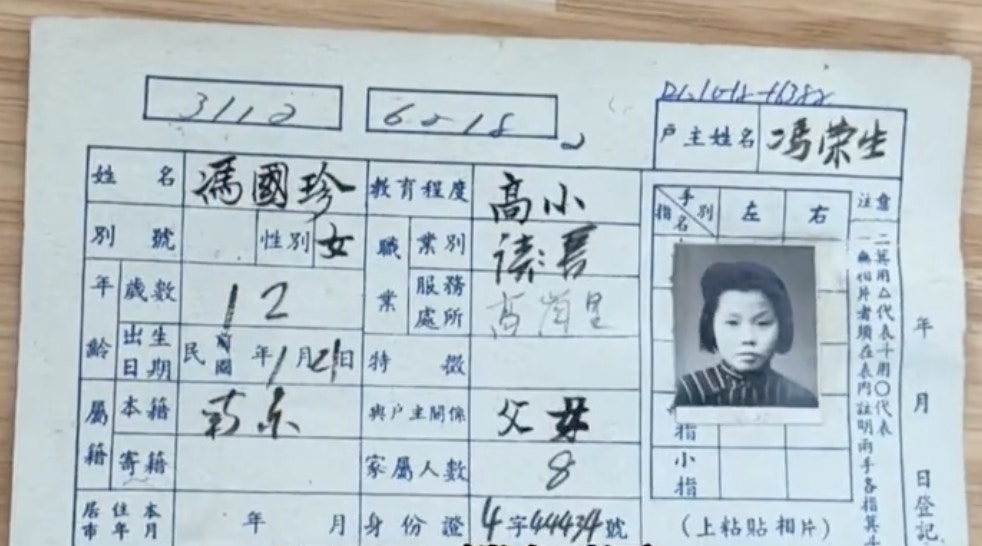 3112 6018
户主姓名 馮荣生
姓名 馮國珍 教育程度 高小
別號 性別 女 職業 業別 讀書
年齡 歲數 12 服務處所
出生日期 民前國 年1月21日 特徵
屬籍 本籍 南京 與戶主關係 父母
寄籍 家屬人數 8
居住本市年月 年 月 身份證 4字44434號
手別 指名 左 右
指
小指
(上粘貼相片)
注意
一無相片者須在表內註明兩手各指箕斗
二箕用△代表斗用〇代表
年 月 日登記